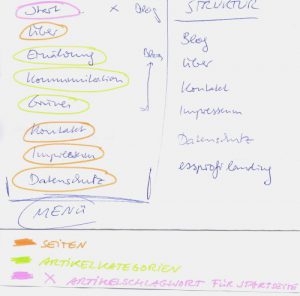 Start × Blog
Über
Ernährung
Blog
Kommunikation
Grünes
Kontakt
Impressum
Datenschutz
MENÜ
STRUKTUR
Blog
Über
Kontakt
Impressum
Datenschutz
essprofi landing
SEITEN
ARTIKELKATEGORIEN
× ARTIKELSCHLAGWORT FÜR STARTSEITE